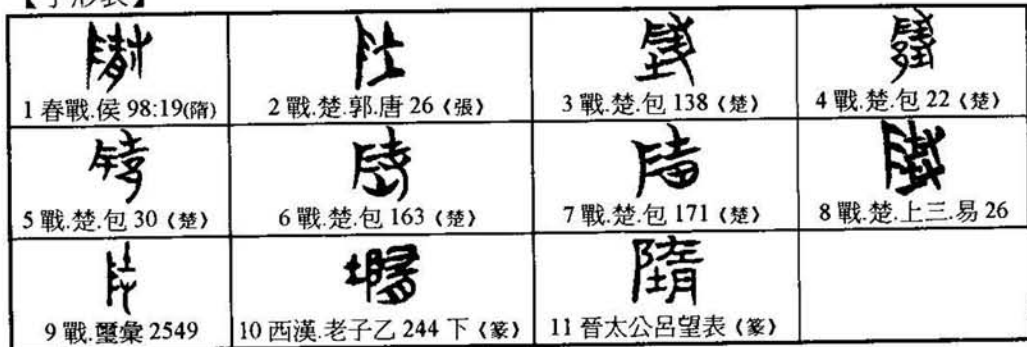 【字形表】
1 春戰.侯 98:19(隋) 2 戰.楚.郭.唐 26《張》 3 戰.楚.包 138《楚》 4 戰.楚.包 22《楚》
5 戰.楚.包 30《楚》 6 戰.楚.包 163《楚》 7 戰.楚.包 171《楚》 8 戰.楚.上三.易 26
9 戰.璽彙 2549 10 西漢.老子乙 244 下《篆》 11 晉太公呂望表《篆》